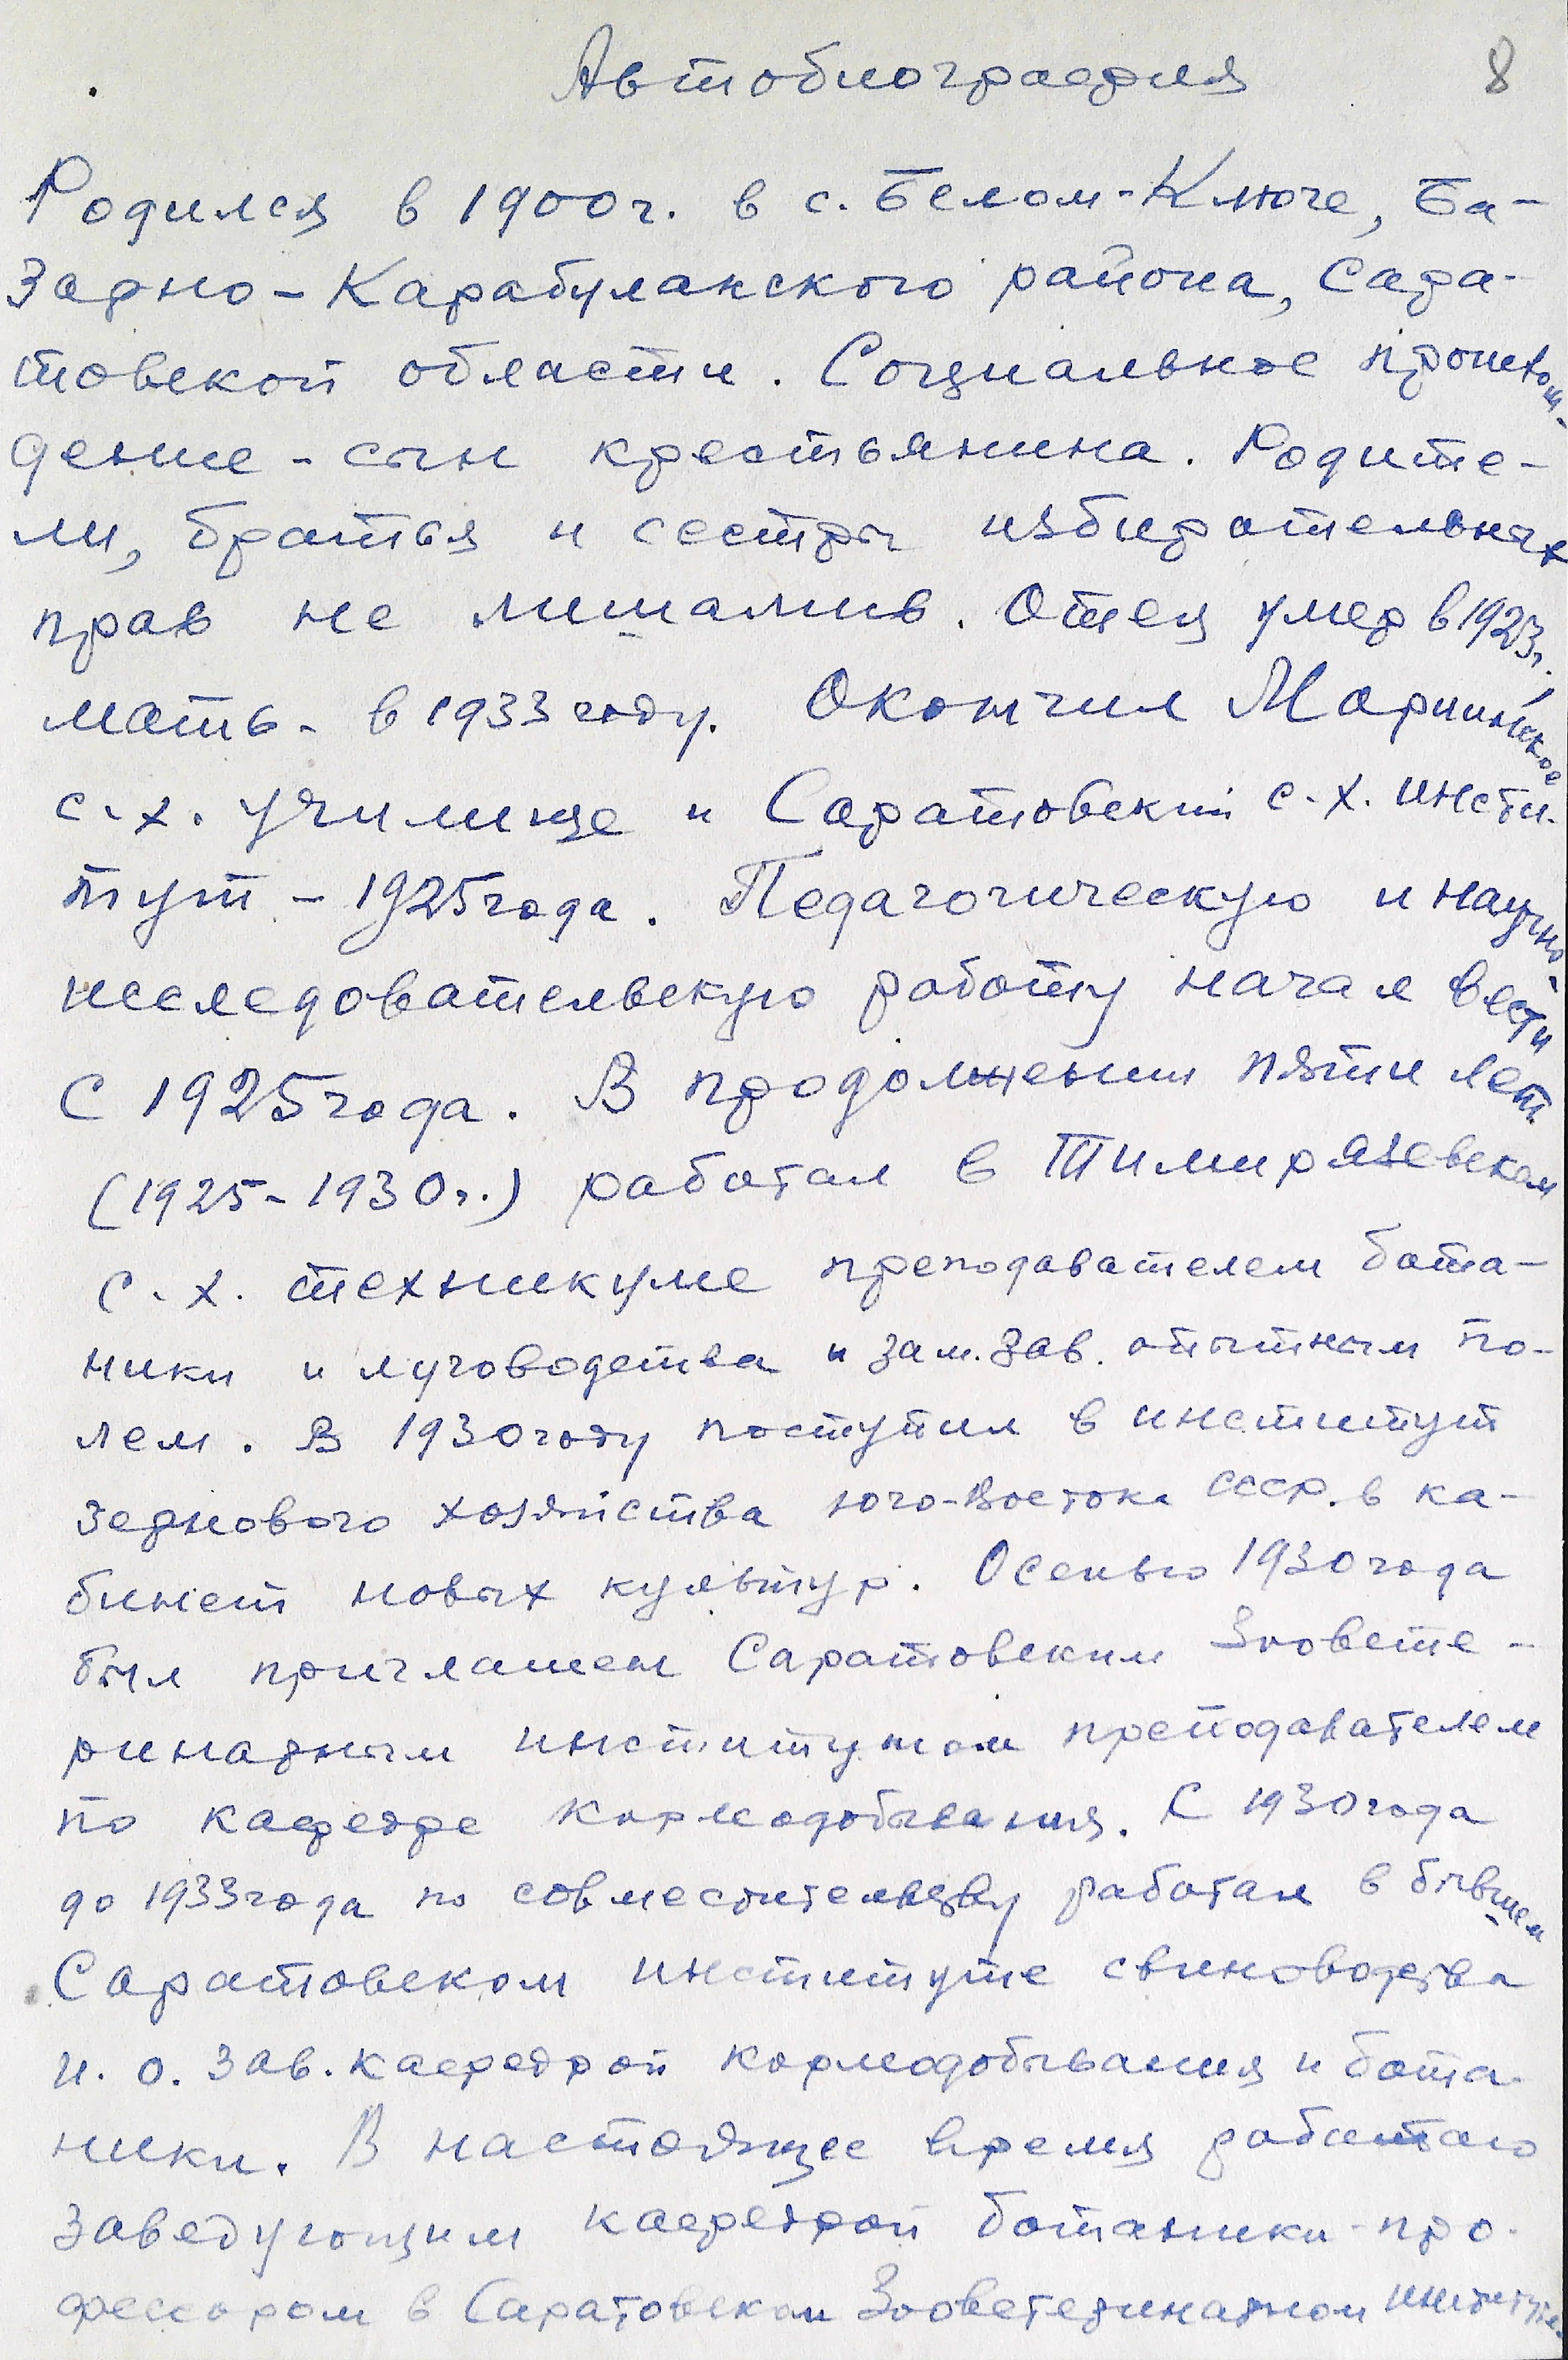 Автобиография
8
Родился в 1900г. в с. Белом-Ключе, Ба-
зарно-Карабулакского района, Сара-
товской области. Социальное происхож-
дение - сын крестьянина. Родите-
ли, братья и сестры избирательных
прав не лишались. Отец умер в 1923г.,
мать - в 1933 году. Окончил Мариинское
с.х. училище и Саратовский с.х. инсти-
тут - 1925 года. Педагогическую и научно-
исследовательскую работу начал вести
с 1925 года. В продолжении пяти лет
(1925-1930г.) работал в Тимирязевском
с.х. техникуме преподавателем бота-
ники и луговодства и зам. зав. опытным по-
лем. В 1930 году поступил в институт
зернового хозяйства юго-востока СССР. в ка-
бинет новых культур. Осенью 1930 года
был приглашен Саратовским Зоовете-
ринарным институтом преподавателем
по кафедре кормодобывания. С 1930 года
до 1933 года по совместительству работал в бывшем
Саратовском институте свиноводства
и. о. зав. кафедрой кормодобывания и бота-
ники. В настоящее время работаю
заведующим кафедрой ботаники - про-
фессором в Саратовском Зооветеринарном институте.